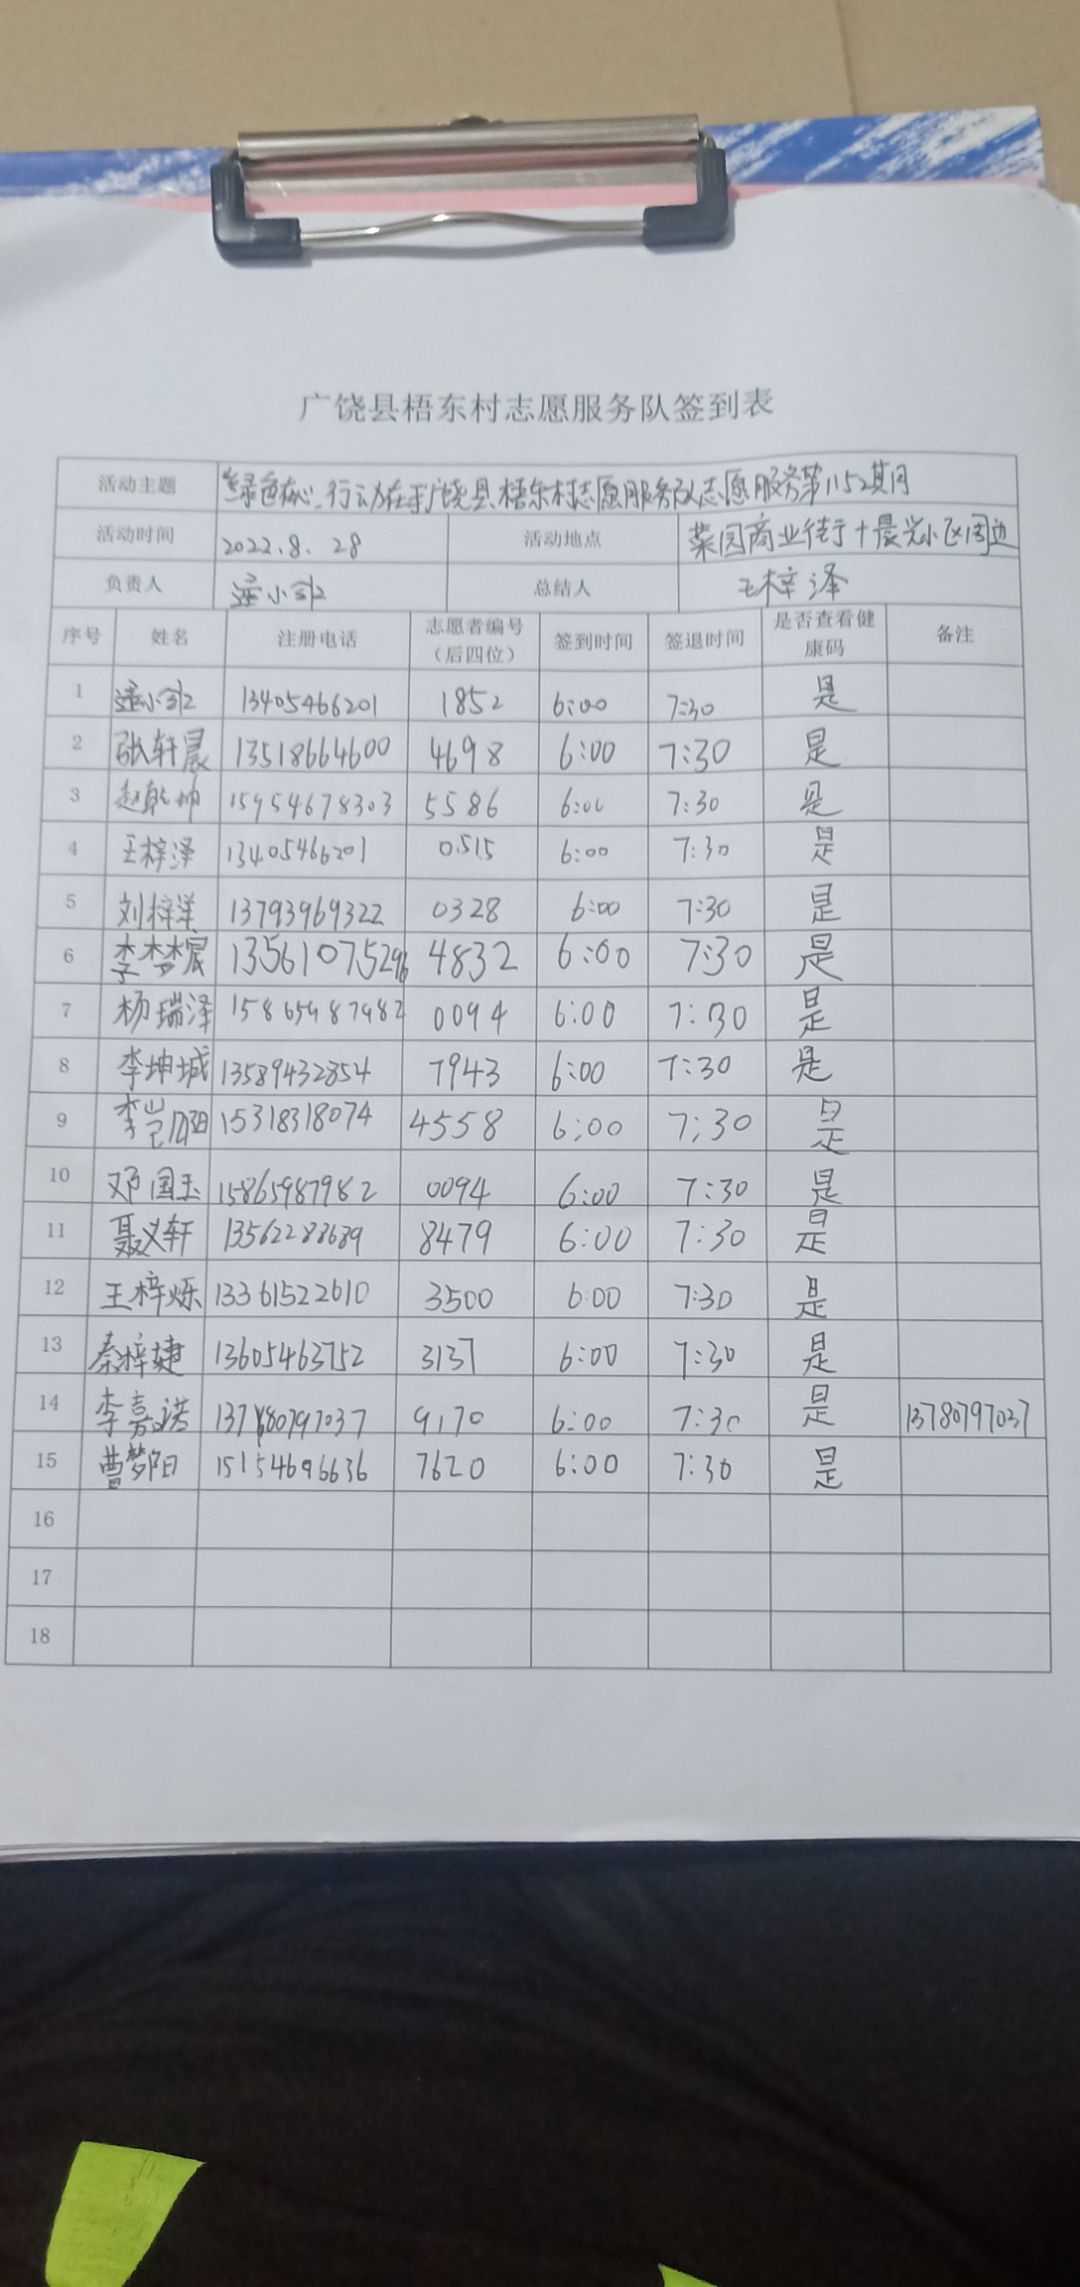 广饶县梧东村志愿服务队签到表
活动主题 "绿色在心、行动在手"广饶县梧东村志愿服务队志愿服务第1152期
活动时间 2022.8.28 活动地点 菜园商业街十晨光小区周边
负责人 总结人 王梓泽
序号 姓名 注册电话 志愿者编号（后四位） 签到时间 签退时间 是否查看健康码 备注
1 13405466201 1852 6:00 7:30 是
2 张轩晨 13518664600 4698 6:00 7:30 是
3 15954678303 5586 6:00 7:30 是
4 王梓泽 13405466201 0515 6:00 7:30 是
5 刘梓洋 13793969322 0328 6:00 7:30 是
6 李梦宸 13561075296 4832 6:00 7:30 是
7 杨瑞泽 15865987982 0094 6:00 7:30 是
8 李坤城 13589432854 7943 6:00 7:30 是
9 15318318074 4558 6:00 7:30 是
10 邓国玉 15865987982 0094 6:00 7:30 是
11 聂义轩 13562283689 8479 6:00 7:30 是
12 王梓烁 13361522610 3500 6:00 7:30 是
13 秦梓婕 13605463752 3137 6:00 7:30 是
14 李嘉诺 9170 6:00 7:30 是 13780797037
15 曹梦阳 15154696636 7620 6:00 7:30 是
16
17
18